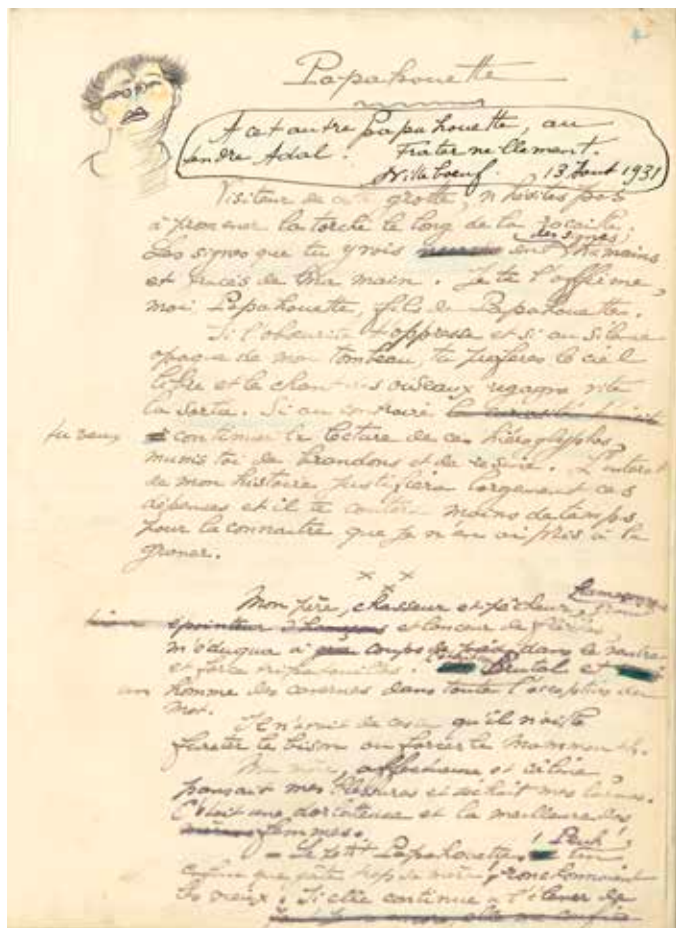 Papahouette
A cet autre Papahouette, au
tendre Adal. Fraternellement.
Villeboeuf. 13 Aout 1931
Visiteur de cette grotte, n'hésites pas
à promener la torche le long de la rocaille;
des signes,
Les signes que tu y vois sont humains
et tracés de ma main. Je te l'affirme,
moi, Papahouette, fils de Papahouette.
Si l'obscurité t'oppresse et si au silence
opaque de mon tombeau, tu préfères le ciel
libre et le chant des oiseaux regagne vite
la sortie. Si au contraire
tu veux continuer la lecture de ces hiéroglyphes,
munis toi de brandons et de résine. L'intérêt
de mon histoire justifiera largement ces
dépenses et il te coutera moins de temps
pour la connaitre que je n'en ai pris à la
graver.
x x x
Mon père, chasseur et pêcheur, grand
et lanceur de pierres
m'éduqua à coups de pied dans le
et force . Brutal et
un homme des cavernes dans toute l'acception du
mot.
Il n'avait de cesse qu'il n'aille
le bison ou forcer le Mammouth.
Ma mère, affectueuse et câline
pansait mes blessures et séchait mes larmes.
C'était une et la meilleure des
femmes.
! Peuh!
- Le petit Papahouette un
que gâte trop sa mère, ronchonnaient
les vieux. Si elle continue à l'élever de